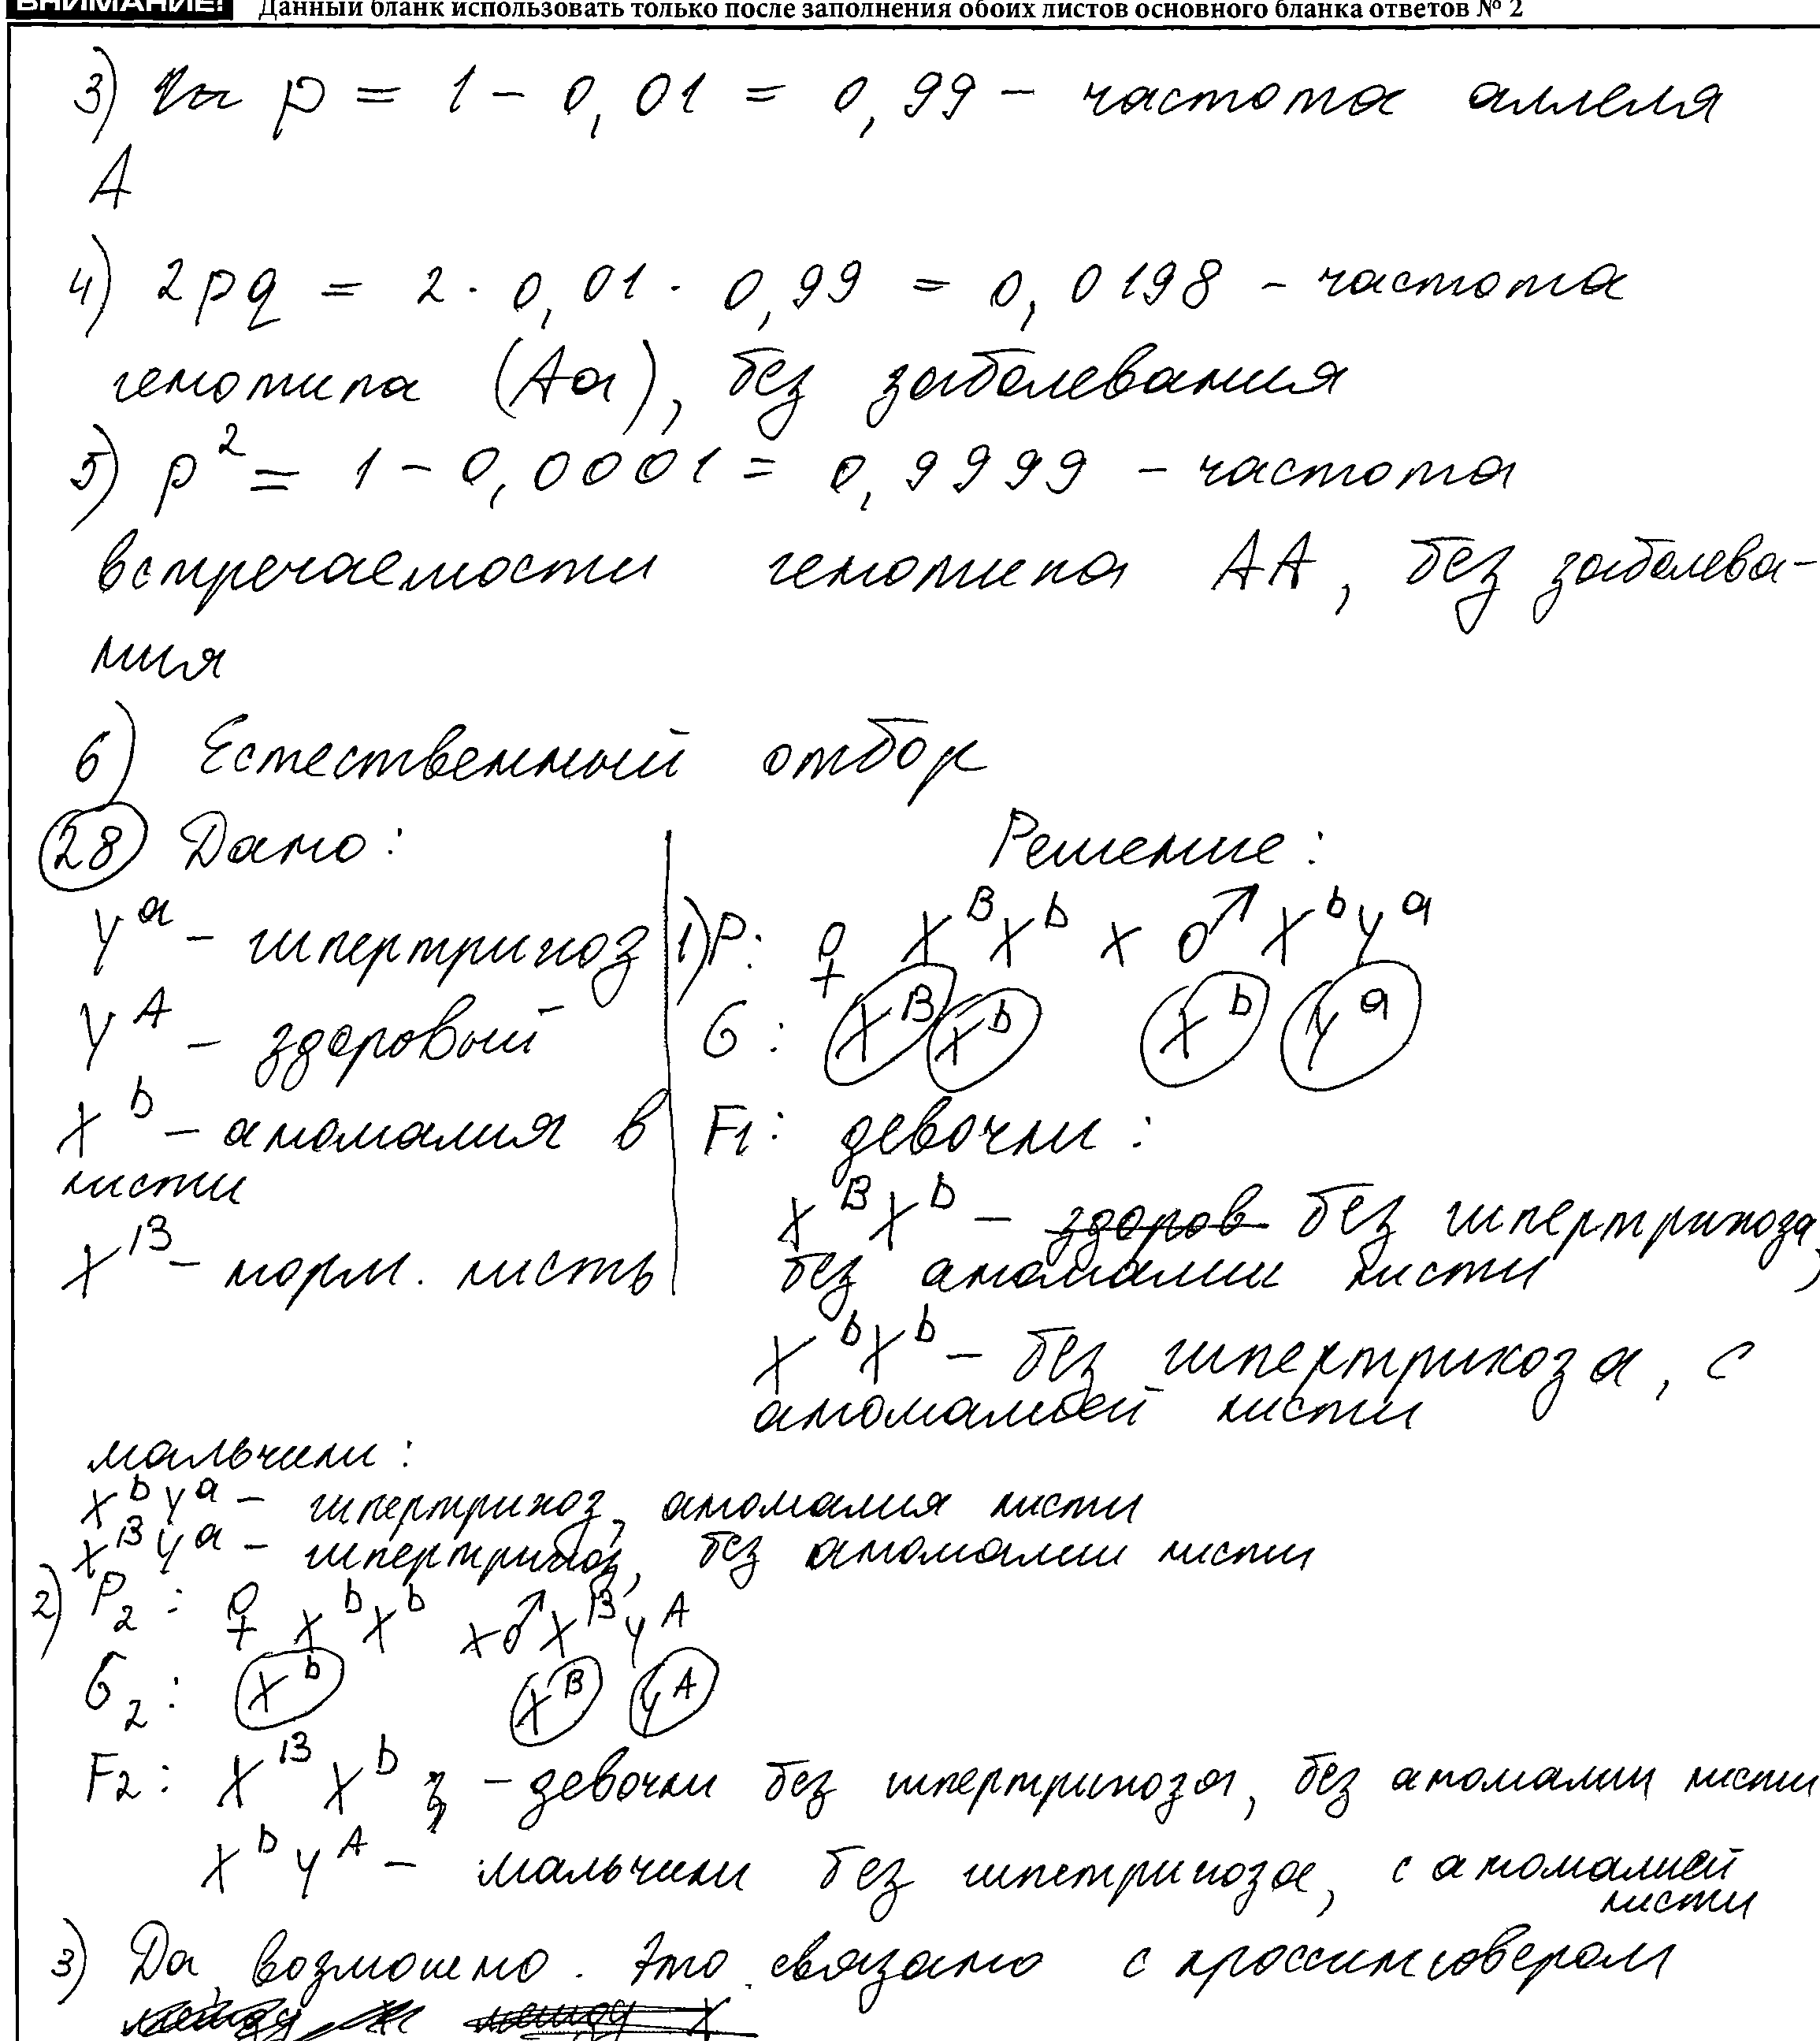 ВНИМАНИЕ! Данный бланк использовать только после заполнения обоих листов основного бланка ответов № 2
3) p = 1 - 0,01 = 0,99 - частота аллеля
А
4) 2pq = 2 · 0,01 · 0,99 = 0,0198 - частота
генотипа (Аа), без заболевания
5) p² = 1 - 0,0001 = 0,9999 - частота
встречаемости генотипа АА, без заболева-
ния
6) Естественный отбор
28 Дано: Решение:
Y^a - гипертрихоз 1) P: ♀ X^B X^b x ♂ X^b Y^a
Y^A - здоровый G: X^B X^b X^b Y^a
X^b - аномалия в F1: девочки:
кисти
X^B X^b - здоров без гипертрихоза,
X^B - норм. кисть без аномалии кисти
X^b X^b - без гипертрихоза, с
аномалией кисти
мальчики:
X^b Y^a - гипертрихоз, аномалия кисти
X^B Y^a - гипертрихоз, без аномалии кисти
2) P2: ♀ X^b X^b x ♂ X^B Y^A
G2: X^b X^B Y^A
F2: X^B X^b - девочки без гипертрихоза, без аномалии кисти
X^b Y^A - мальчики без гипетрихоза, с аномалией
кисти
3) Да, возможно. Это связано с кроссинговером